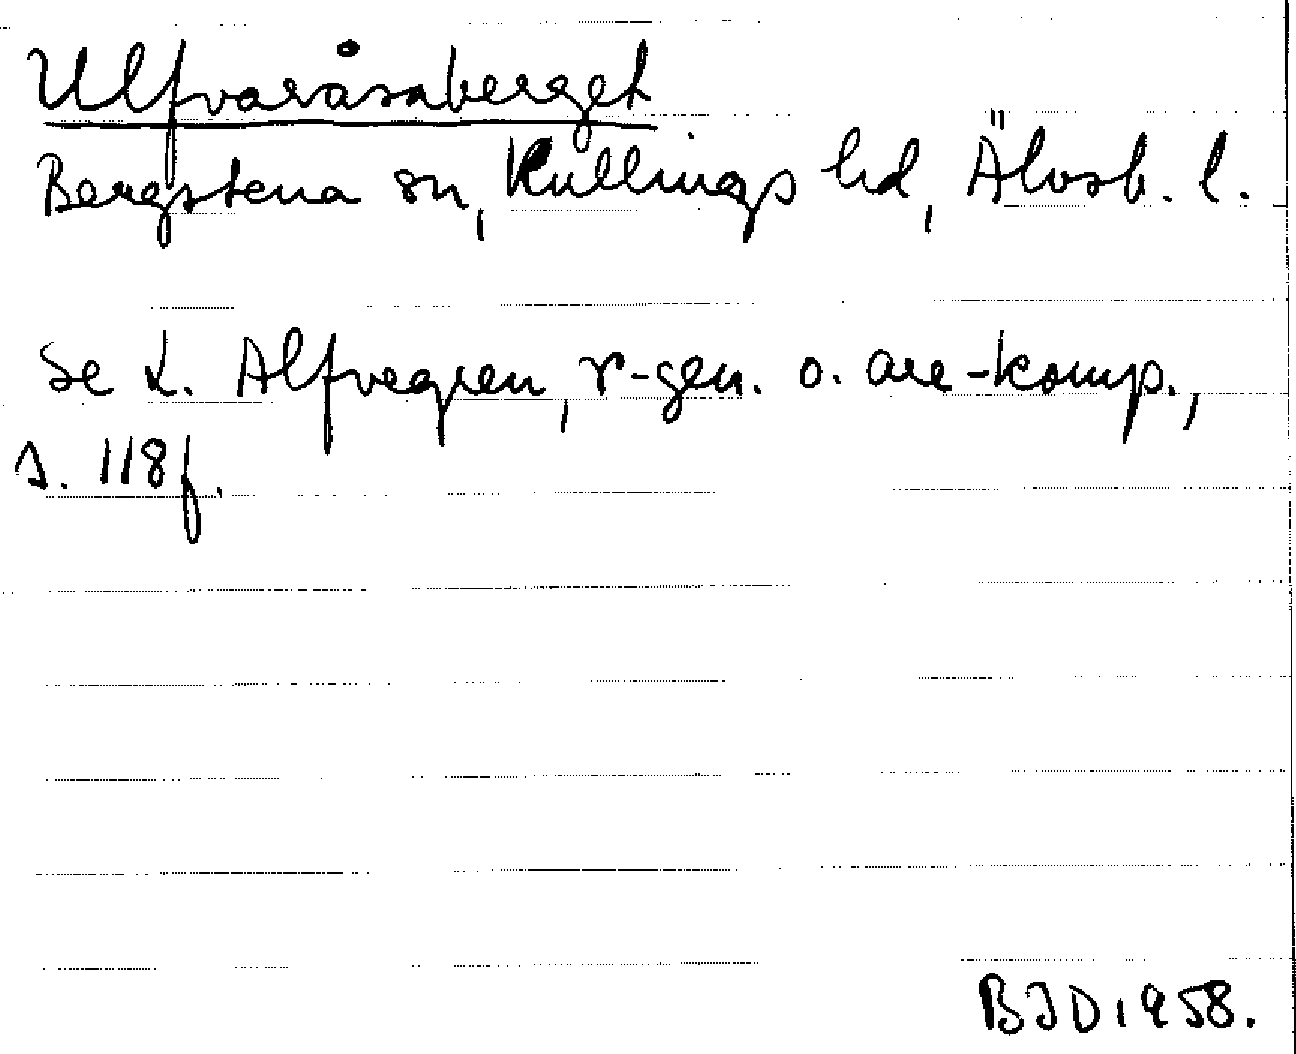 Ulfvaråsaberget
Bergstena sn, Kullings hd, Älvsb. l.
Se L. Alfvegren, r-gen. o. are-komp.,
s. 118 f.
BJD 1958.